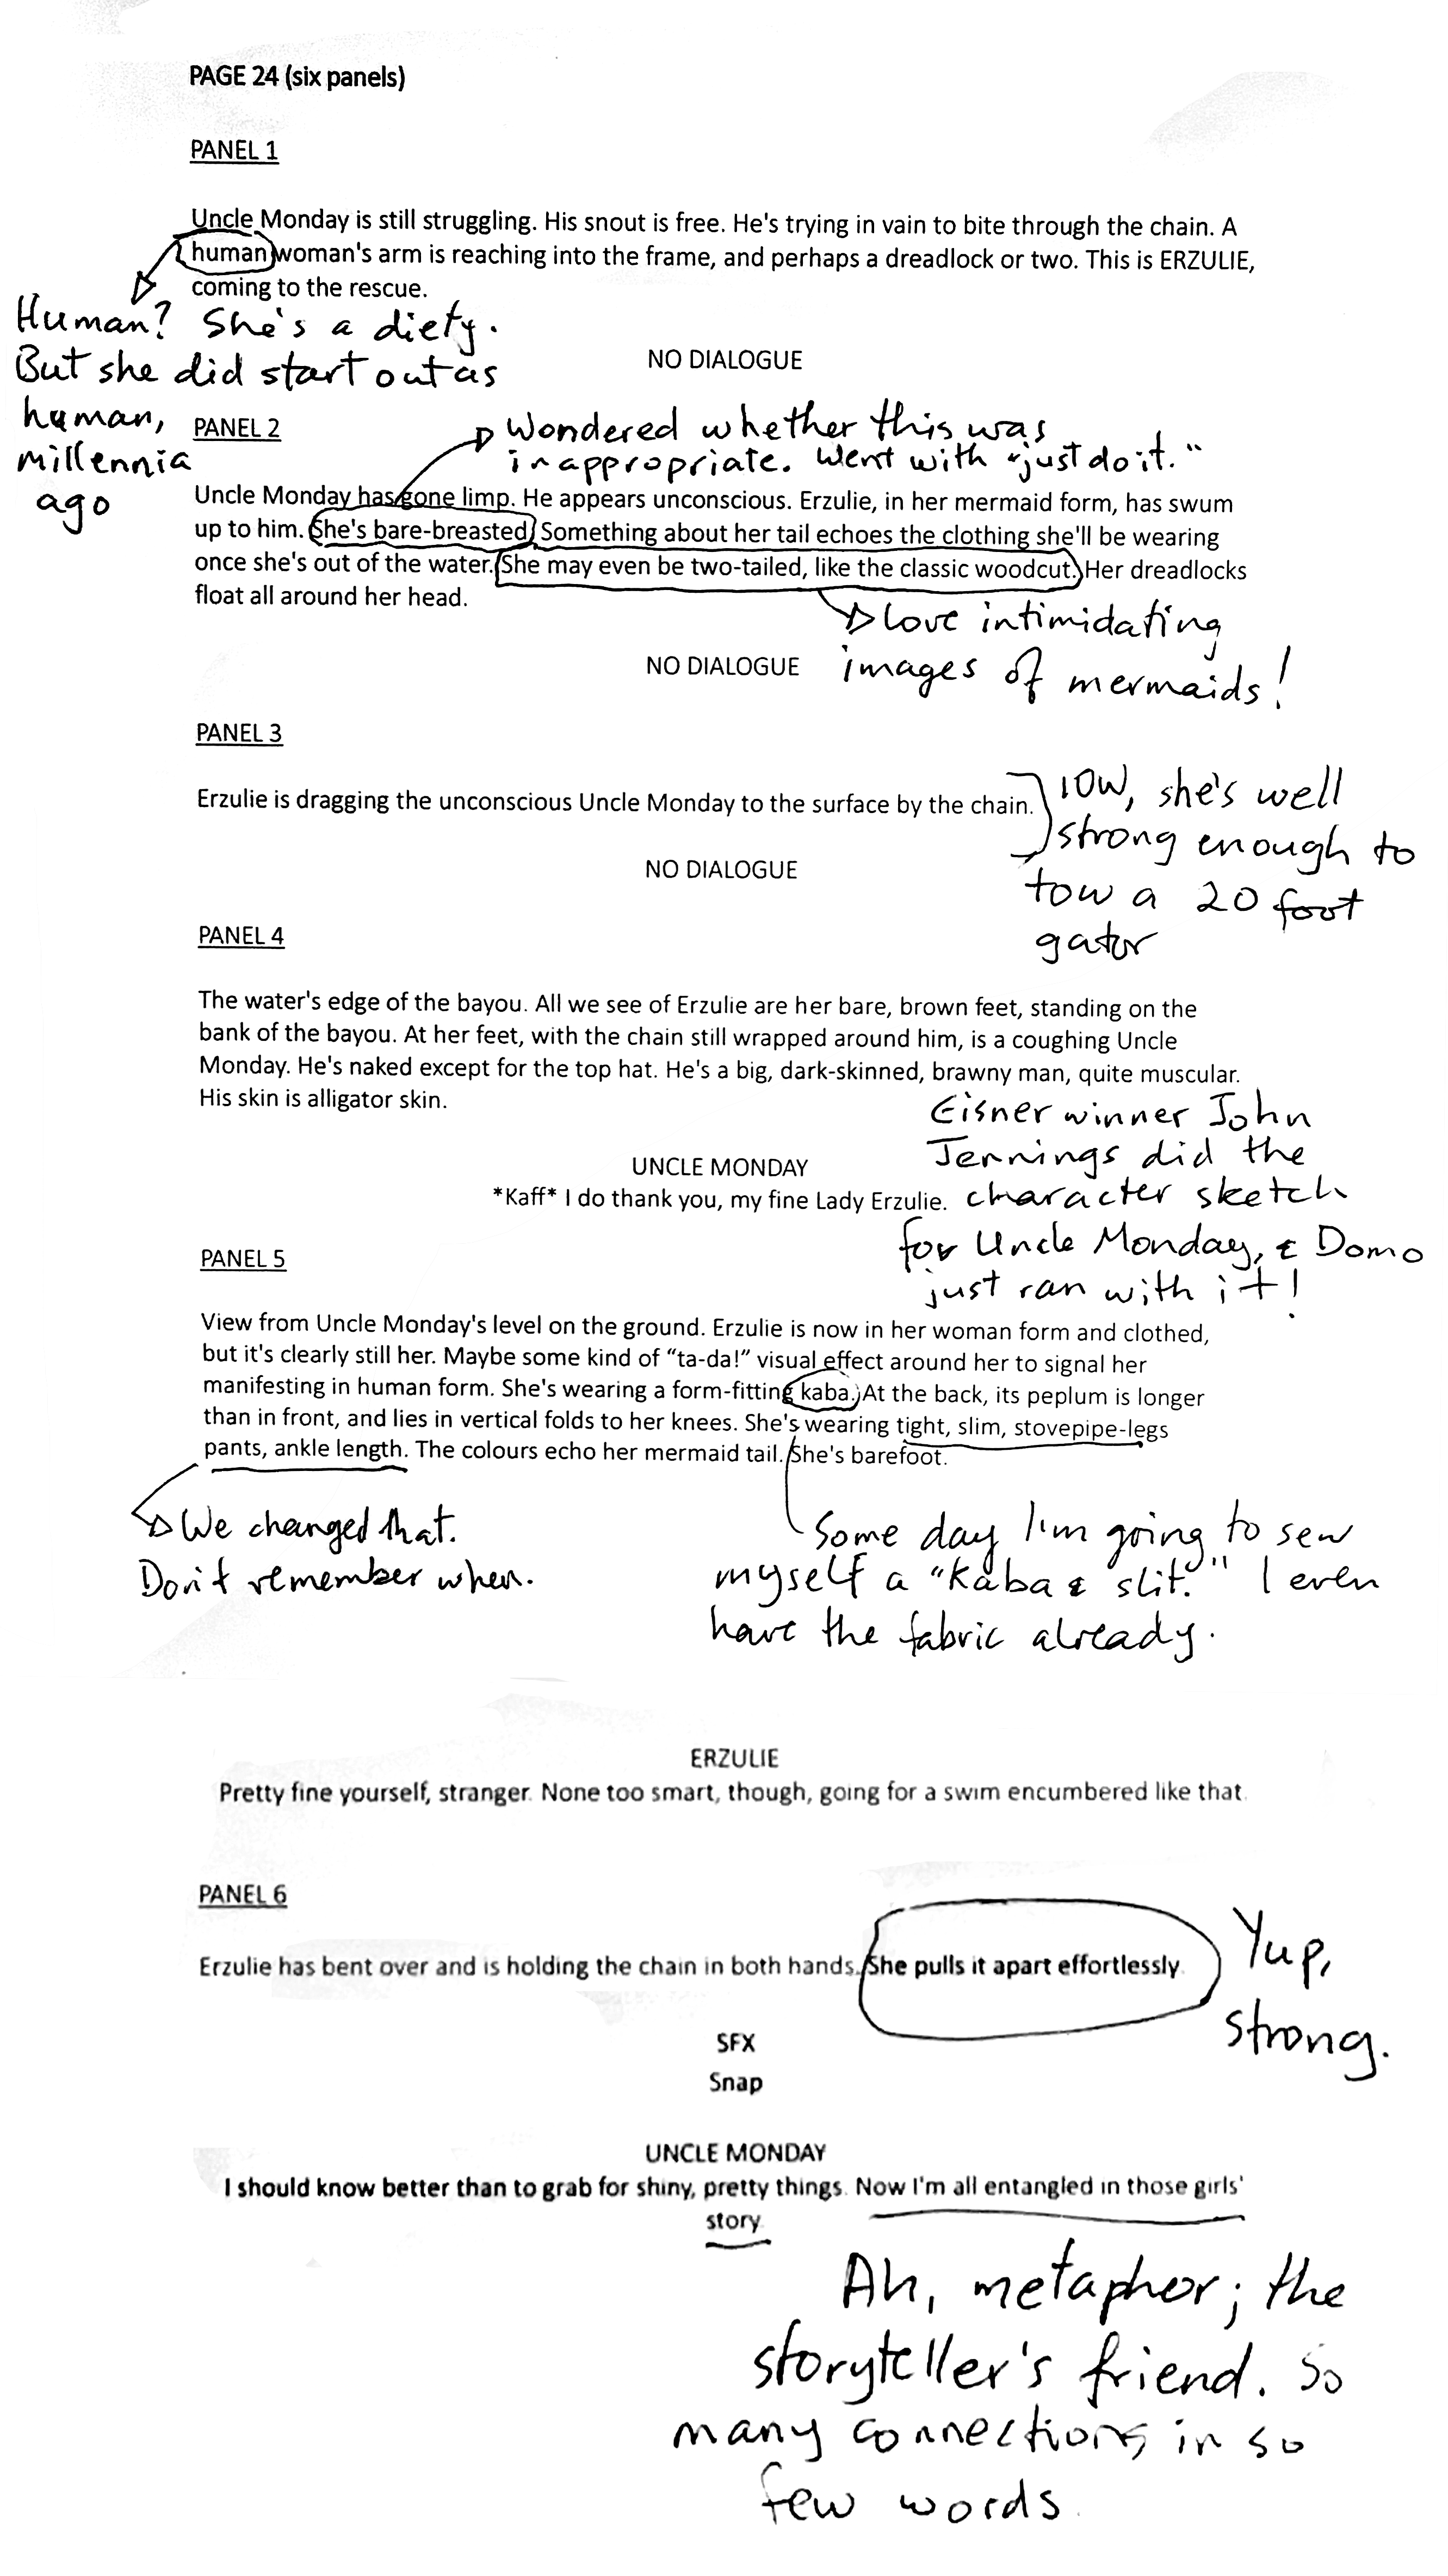 PAGE 24 (six panels)
PANEL 1
Uncle Monday is still struggling. His snout is free. He's trying in vain to bite through the chain. A
human woman's arm is reaching into the frame, and perhaps a dreadlock or two. This is ERZULIE,
coming to the rescue.
Human? She's a diety.
But she did start out as
human,
millennia
ago
NO DIALOGUE
PANEL 2
Wondered whether this was
inappropriate. Went with "just do it."
Uncle Monday has gone limp. He appears unconscious. Erzulie, in her mermaid form, has swum
up to him. She's bare-breasted. Something about her tail echoes the clothing she'll be wearing
once she's out of the water. She may even be two-tailed, like the classic woodcut. Her dreadlocks
float all around her head.
Love intimidating
images of mermaids!
NO DIALOGUE
PANEL 3
Erzulie is dragging the unconscious Uncle Monday to the surface by the chain.
IOW, she's well
strong enough to
tow a 20 foot
gator
NO DIALOGUE
PANEL 4
The water's edge of the bayou. All we see of Erzulie are her bare, brown feet, standing on the
bank of the bayou. At her feet, with the chain still wrapped around him, is a coughing Uncle
Monday. He's naked except for the top hat. He's a big, dark-skinned, brawny man, quite muscular.
His skin is alligator skin.
Eisner winner John
Jennings did the
character sketch
for Uncle Monday, & Domo
just ran with it!
UNCLE MONDAY
*Kaff* I do thank you, my fine Lady Erzulie.
PANEL 5
View from Uncle Monday's level on the ground. Erzulie is now in her woman form and clothed,
but it's clearly still her. Maybe some kind of "ta-da!" visual effect around her to signal her
manifesting in human form. She's wearing a form-fitting kaba. At the back, its peplum is longer
than in front, and lies in vertical folds to her knees. She's wearing tight, slim, stovepipe-legs
pants, ankle length. The colours echo her mermaid tail. She's barefoot.
We changed that.
Don't remember when.
Some day I'm going to sew
myself a "kaba & slit." I even
have the fabric already.
ERZULIE
Pretty fine yourself, stranger. None too smart, though, going for a swim encumbered like that.
PANEL 6
Erzulie has bent over and is holding the chain in both hands. She pulls it apart effortlessly.
Yup,
strong.
SFX
Snap
UNCLE MONDAY
I should know better than to grab for shiny, pretty things. Now I'm all entangled in those girls'
story.
Ah, metaphor; the
storyteller's friend. So
many connections in so
few words.